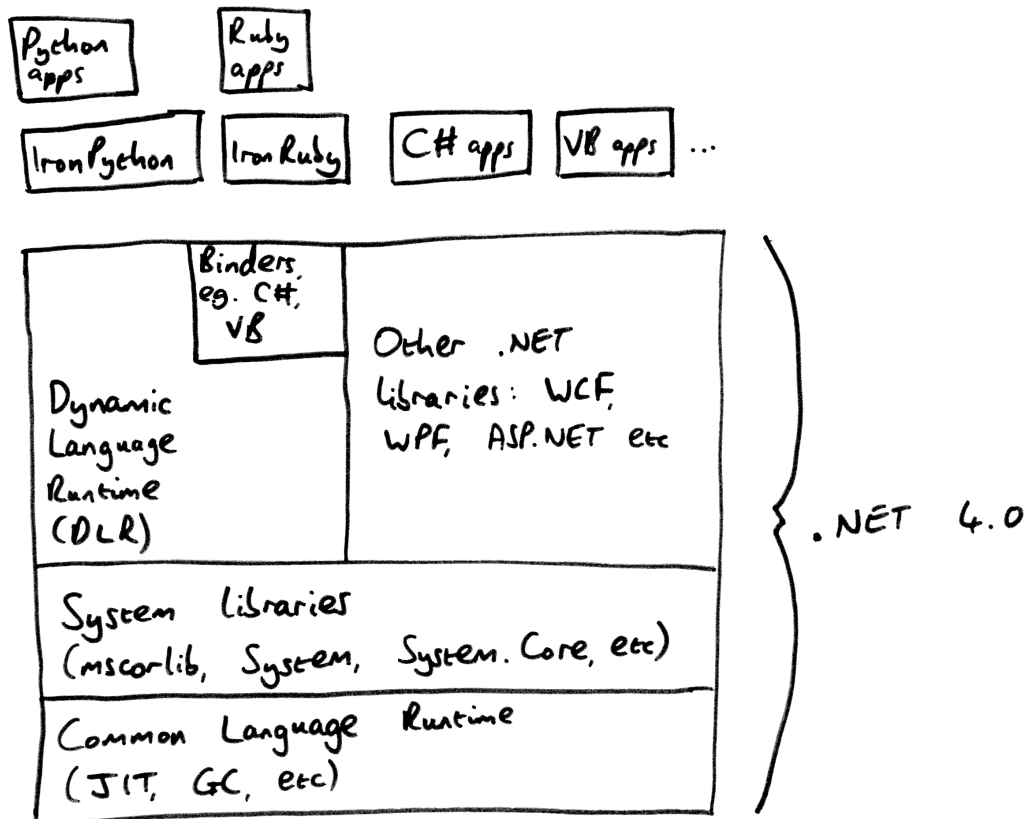 Python
apps
Ruby
apps
IronPython
IronRuby
C# apps
VB apps
...
Binders,
eg. C#,
VB
Dynamic
Language
Runtime
(DLR)
Other .NET
libraries: WCF,
WPF, ASP.NET etc
.NET 4.0
System libraries
(mscorlib, System, System.Core, etc)
Common Language Runtime
(JIT, GC, etc)